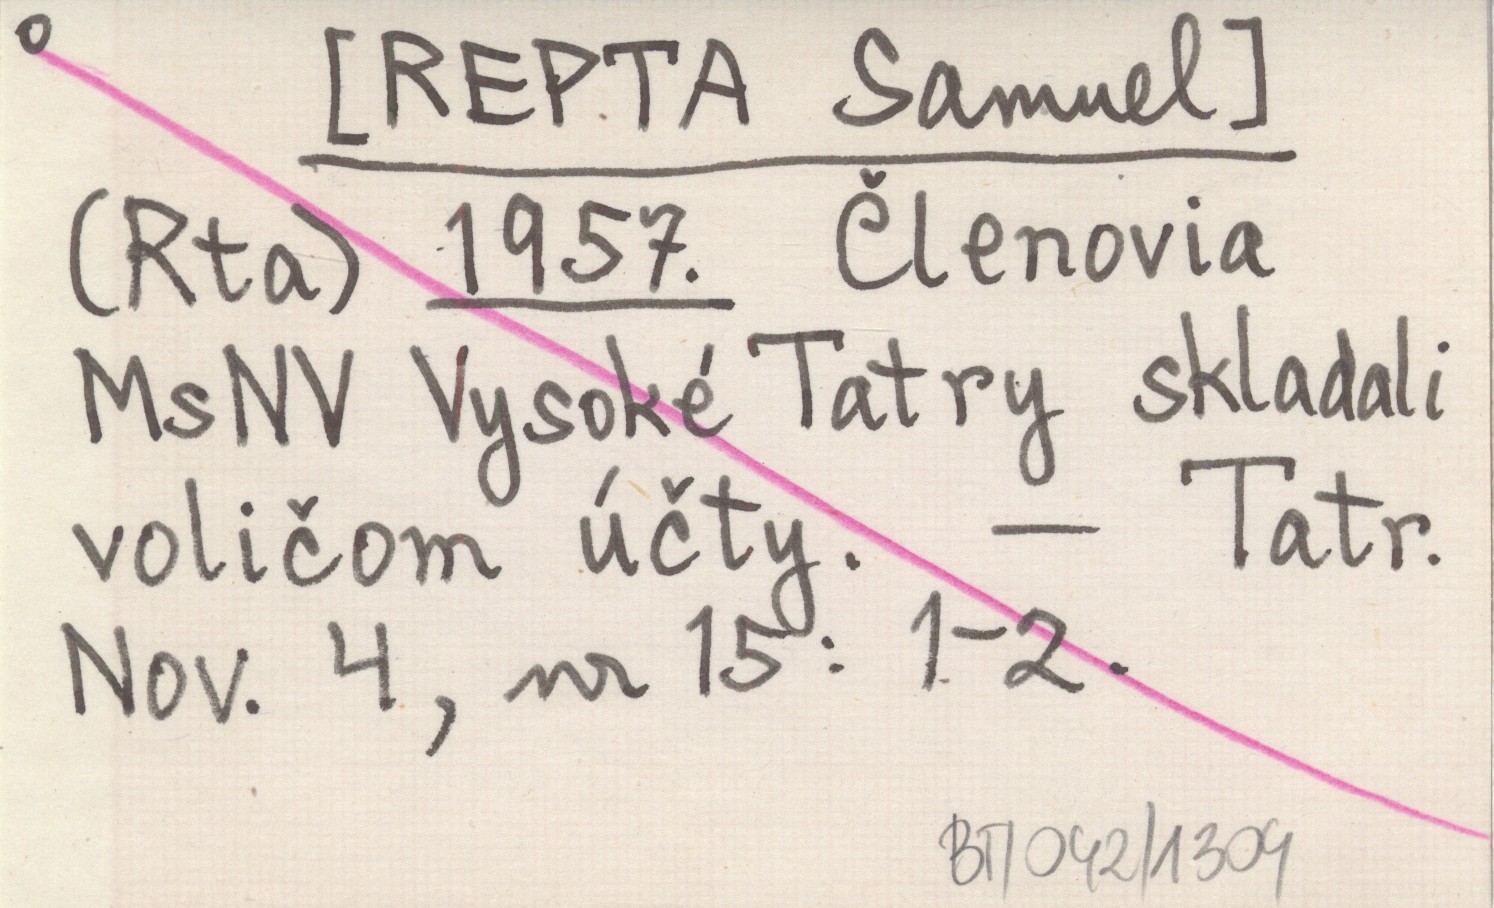 [REPTA Samuel]
(Rta) 1957. Členovia
MsNV Vysoké Tatry skladali
voličom účty. — Tatr.
Nov. 4, nr 15: 1-2.
BT/042/1304